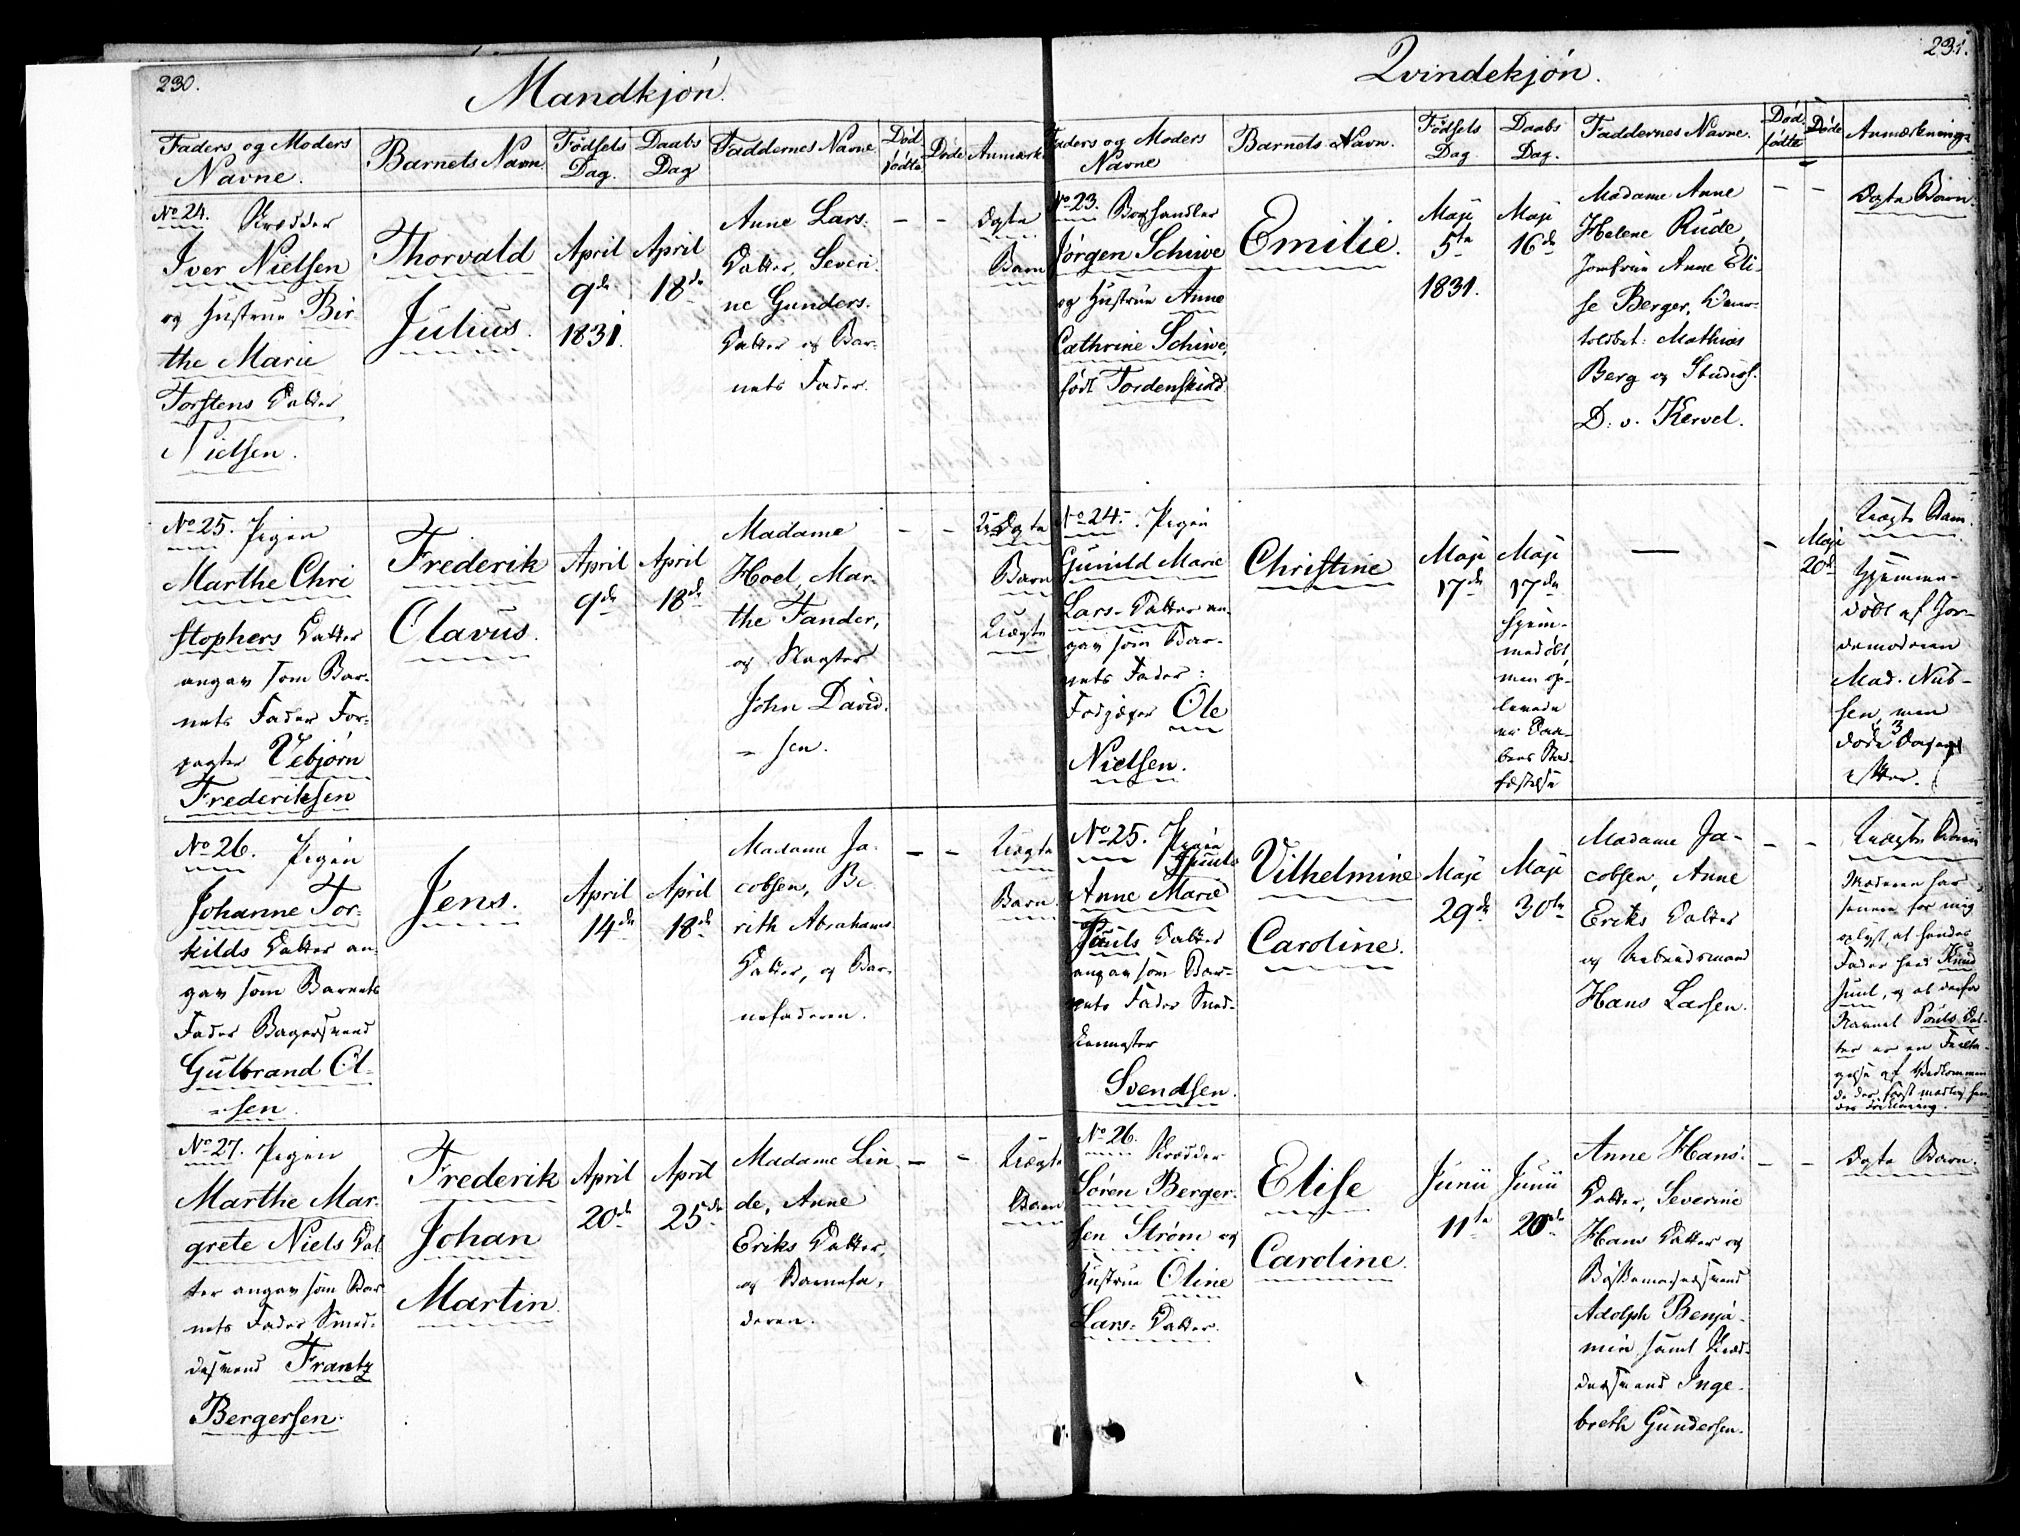 230.
Mandkjøn.
Faders og Moders
Navne.
Barnets Navn
Fødsels
Dag.
Daabs
Dag
Faddernes Navne
Død
fødte
Døde
Anmærk
No 24.
Iver Nielsen
og Hustrue Bir-
the Marie
Torstens Datter
Nielsen.
Thorvald
Julius.
April
9de
1831.
April
18de
Anne Lars
Datter, Severi
ne Gunders
Datter og Bar-
nets Fader.
- -
Ægte
Barn
No 25. Pigen
Marthe Chri
stophers Datter
angav som Bar-
nets Fader For-
pagter Vebjørn
Frederiksen
Frederik
Olavus.
April
9de
April
18de
Madame
Hoel, Mar-
the Tander,
og
John David-
sen.
- -
Barn
Uægte
No 26. Pigen
Johanne Tor-
kilds Datter an-
gav som Barnets
Fader Bagersvend
Gulbrand Ol-
sen.
Jens.
April
14de
April
18de
Madame Ja-
cobsen, Be
rith Abrahams
Datter, og Bar-
nefaderen.
- -
Uægte
Barn
No 27. Pigen
Marthe Mar-
grete Niels Dat
ter angav som Bar
nets Fader Sme-
desvend Frantz
Bergersen.
Frederik
Johan
Martin.
April
20de
April
25de
Madame Lin
de, Anne
Eriks Datter,
og Barnefa-
deren.
- -
Uægte
Barn
231.
Qvindekjøn.
Faders og Moders
Navne
Barnets Navn.
Fødsels
Dag
Daabs
Dag.
Faddernes Navne.
Død
fødte
Døde
Anmærkning
No 23. Boghandler
Jørgen Schiwe
og Hustrue Anne
Cathrine Schiwe,
født Tordenskiold
Emilie.
Maji
5te
1831.
Maji
16de
Madame Anne
Helene Rude,
Jomfrue Anne Eli-
se Berger,
Mathias
Berg og Studios.
D. v. Kervel.
- -
Ægte Barn.
No 24. Pigen
Gunild Marie
Lars-Datter an-
gav som Bar-
nets Fader:
Fodjæger Ole
Nielsen.
Christine
Maji
17de
Maji
17de
hjem-
medøbt
men op-
levede
ei Daa-
bens Stad-
fæstelse
—
-
Maji
20de
Uægte Barn.
Hjemme-
døbt af Jor-
demoderen
Mad. Nub-
sen, men
døde 3 Dage
efter.
No 25. Pigen
Anne Marie
Pouls Datter
angav som Bar-
nets Fader Smed-
Svendsen.
Vilhelmine
Caroline.
Maji
29de
Maji
30te
Madame Ja-
cobsen, Anne
Eriks Datter
og Arbeidsmand
Hans Larsen.
- -
Uægte Barn
Moderen har
senere for mig
oplyst, at hendes
Fader hed Knud
Juul, og at derfor
Navnet Pouls Dat-
ter er en Feilta-
gelse af Vedkommen
de der først meldte hen
des Forklaring.
No 26.
Søren Berger-
sen Strøm og
Hustrue Oline
Lars-Datter.
Elise
Caroline.
Junii
11te
Junii
20de
Anne Hans
Datter, Severine
Hans Datter og
Bøssemagersvend
Adolph Benja-
min, samt
Inge-
breth Gundersen.
- -
Ægte Barn.